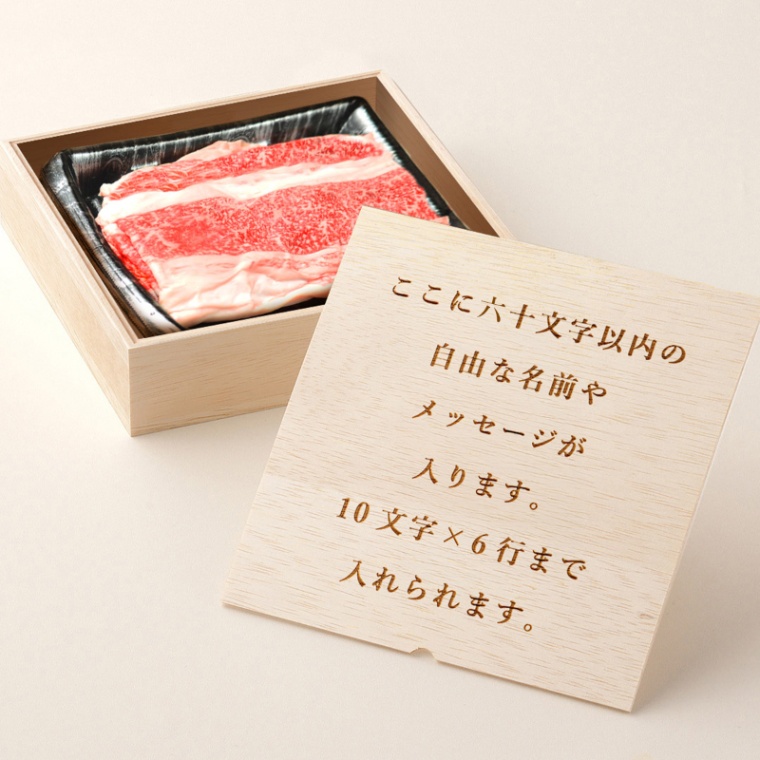 ここに六十文字以内の
自由な名前や
メッセージが
入ります。
10文字×6行まで
入れられます。